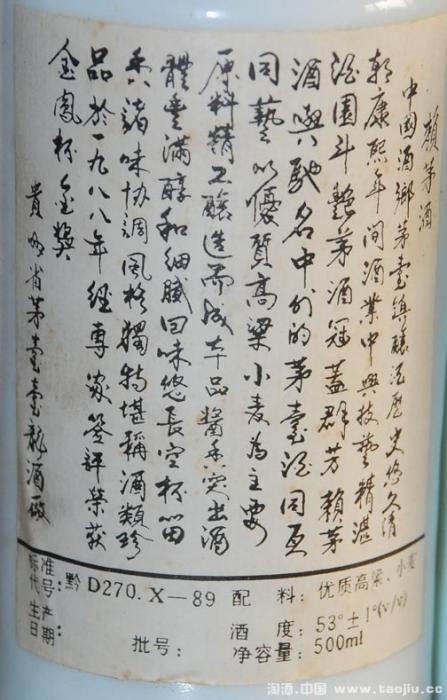 賴茅酒
中國酒鄉茅臺鎮釀酒歷史悠久清
朝康熙年間酒業中興技藝精湛
酒園斗艷茅酒冠蓋群芳賴茅
酒與馳名中外的茅臺酒同頁
同藝以優質高粱小麦為主要
原料精工釀造而成本品醬香突出酒
體豐滿醇和细膩回味悠長空杯留
香諸味协調風格獨特堪稱酒類珍
品於一九八八年經專家签評榮获
金鳳杯金獎
貴州省茅臺臺龍酒廠
标准代号：黔D270.X—89 配料：优质高粱、小麦
生产日期： 批号： 酒度：53°±1°(v/v)
净容量：500ml
淘酒.中国 www.taojiu.cc